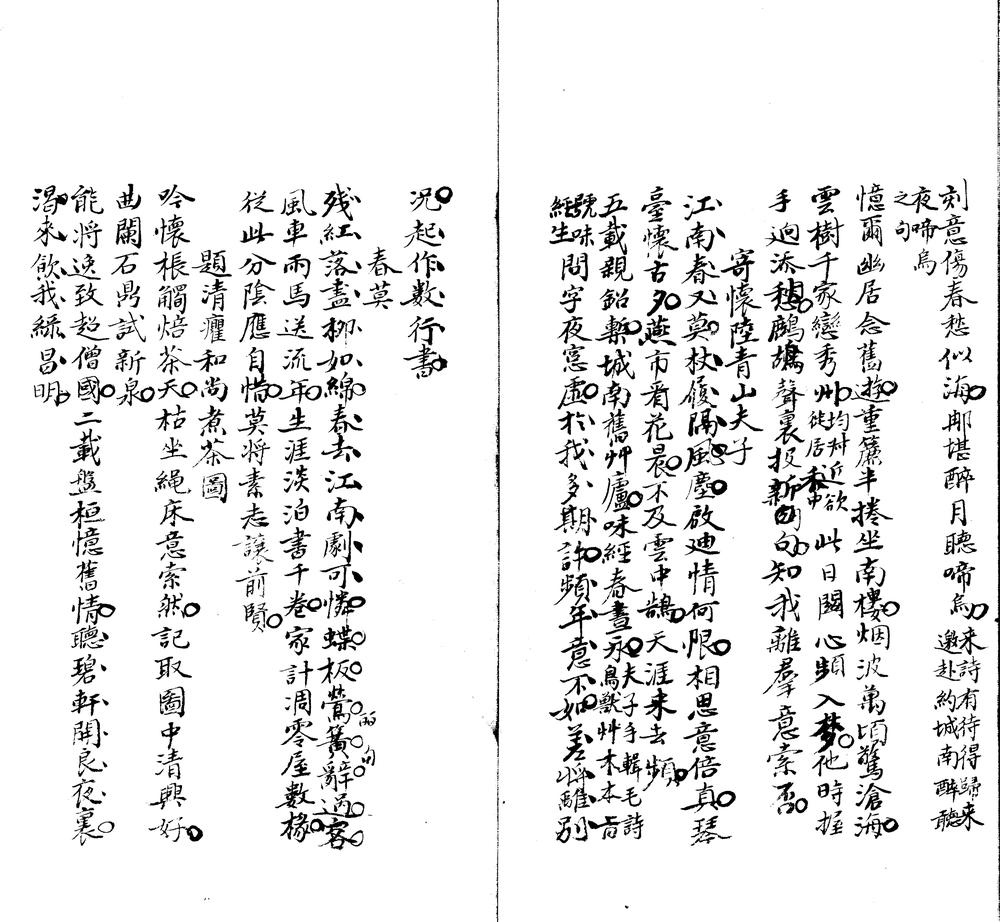 刻意傷春愁似海那堪醉月聽啼烏來詩有待得歸來邀赴約城南醉聽
夜啼烏之句
憶爾幽居念舊遊重簾半捲坐南樓烟波萬頃驚滄海
雲樹千家戀秀州均村近欲徙居秀中此日關心頻入夢他時握
手迴添愁鷓鴣聲裏投新句知我離羣意索否
寄懷陸青山夫子
江南春又莫杖履隔風塵啟迪情何限相思意倍真琴
臺懷古夕燕市看花晨不及雲中鵠天涯來去頻
五載親鉛槧城南舊艸廬味經春晝永夫子手輯毛詩鳥獸艸木本旨
號味經生問字夜窓虛於我多期許頻年意不如差將離別
況起作數行書
春莫
殘紅落盡柳如綿春去江南劇可憐蝶板鶯簧辭過客
風車雨馬送流年生涯淡泊書千卷家計凋零屋數椽
從此分陰應自惜莫將素志讓前賢
題清癯和尚煮茶圖
吟懷棖觸焙茶天枯坐繩床意索然記取圖中清興好
曲闌石鼎試新泉
能將逸致超僧國二載盤桓憶舊情聽碧軒開良夜裏
渴來飲我綠昌明